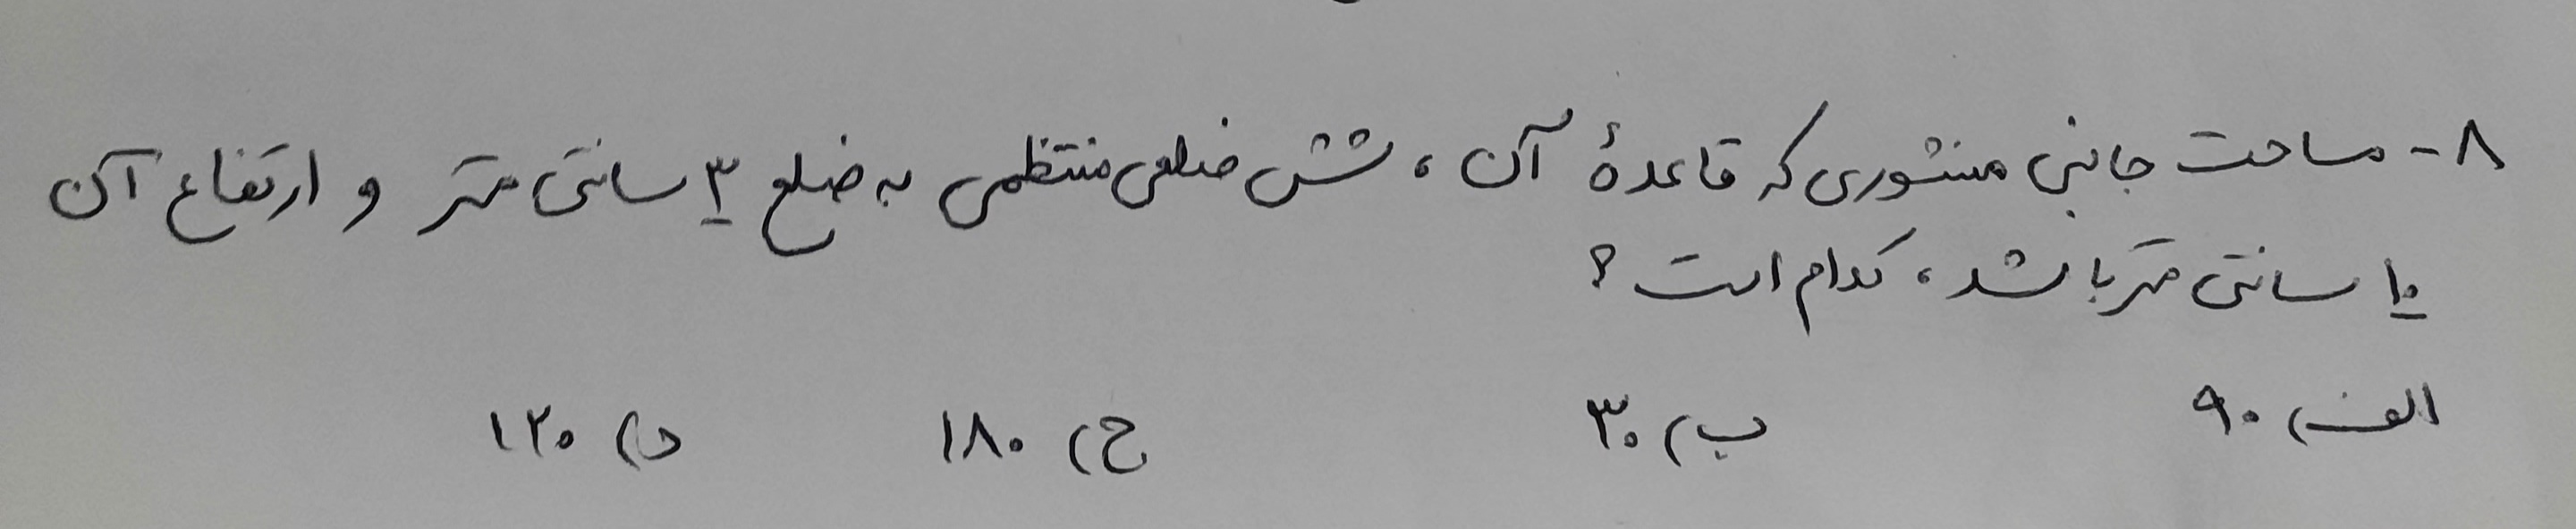 ۸- مساحت جانبی منشوری که قاعدهٔ آن، شش ضلعی منتظمی به ضلع ۳ سانتی متر و ارتفاع آن
۱۰ سانتی متر باشد، کدام است؟
الف) ۹۰ ب) ۳۰ ج) ۱۸۰ د) ۱۲۰